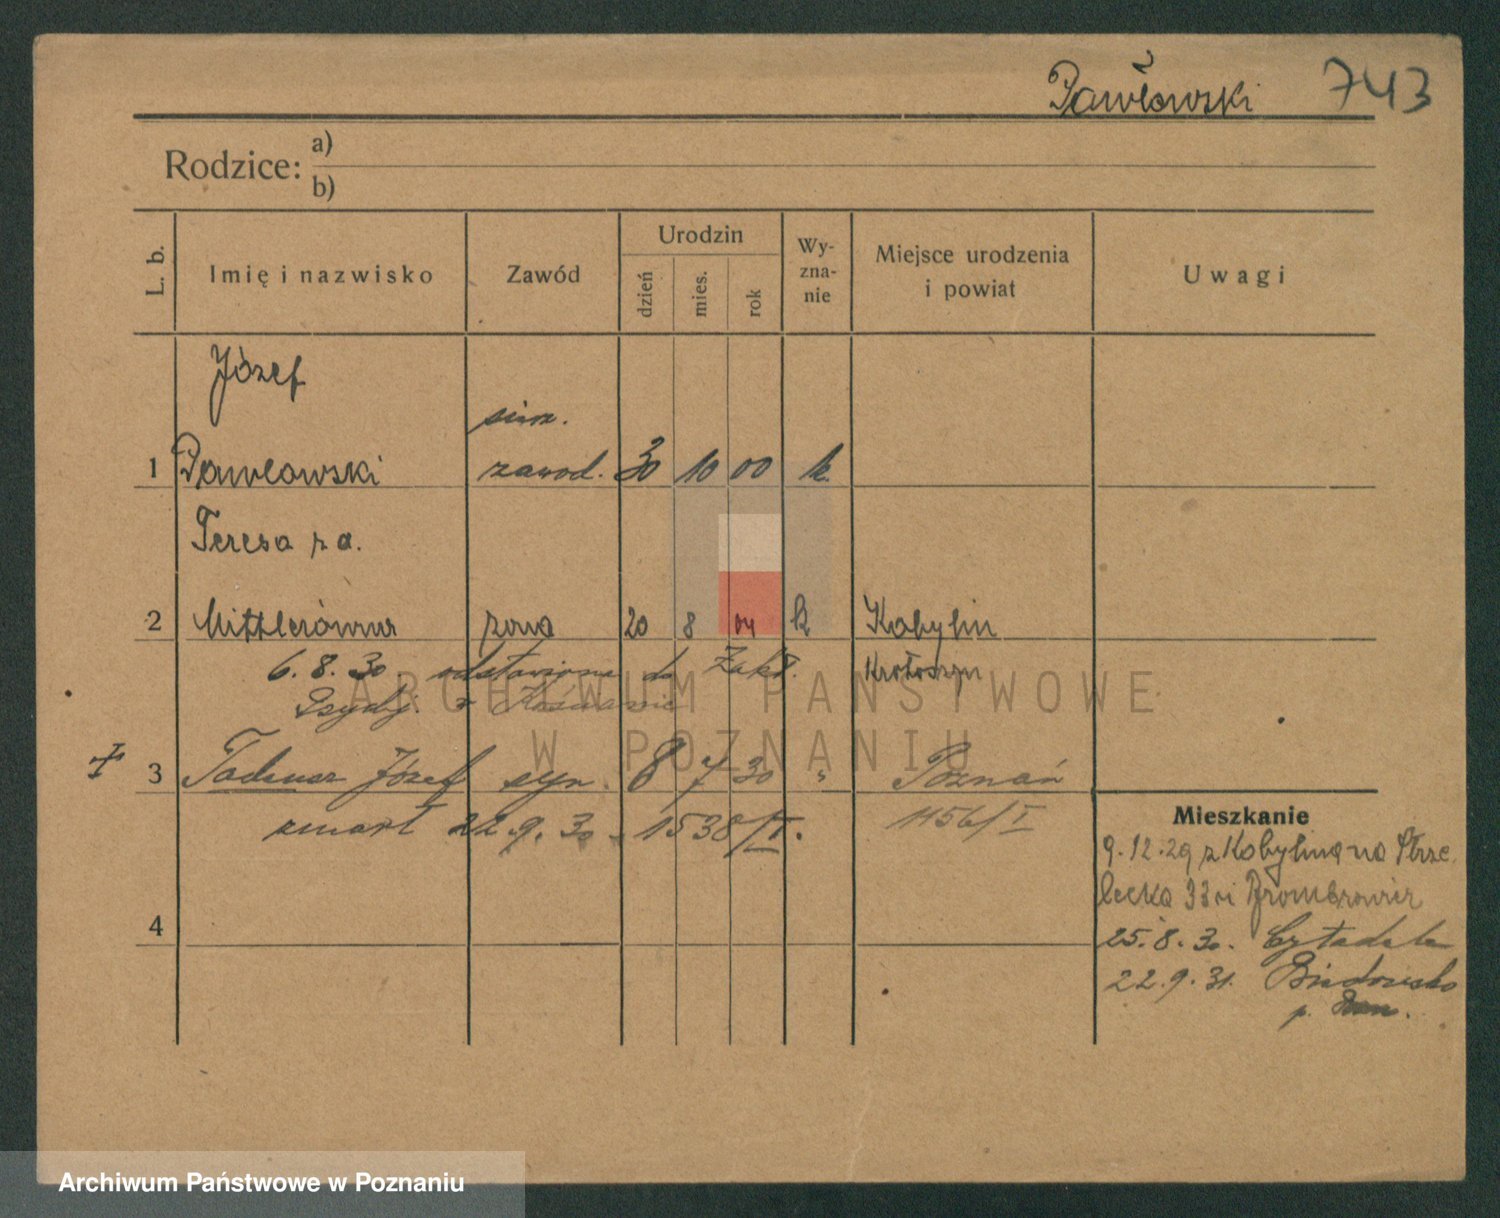 Pawłowski 743
Rodzice: a)
b)
L. b. Imię i nazwisko Zawód Urodzin dzień mies. rok Wy-zna-nie Miejsce urodzenia i powiat Uwagi
Józef
sierż.
1 Pawłowski zawod. 30 10 00 k.
Teresa z d.
2 Mittlerówna żona 20 8 04 k Kobylin
6.8.30 odstawiona do Zakł. Krotoszyn
Psych. w Kościanie
ARCHIWUM PAŃSTWOWE
W POZNANIU
+ 3 Tadeusz Józef syn. 8 7 30 " Poznań
zmarł 22.9.30. 1538/I. 1156/I
Mieszkanie
9.12.29 z Kobylina na Strze
lecka 33
4 25.8.30. Cytadela
22.9.31. Biedrusko
p.
Archiwum Państwowe w Poznaniu